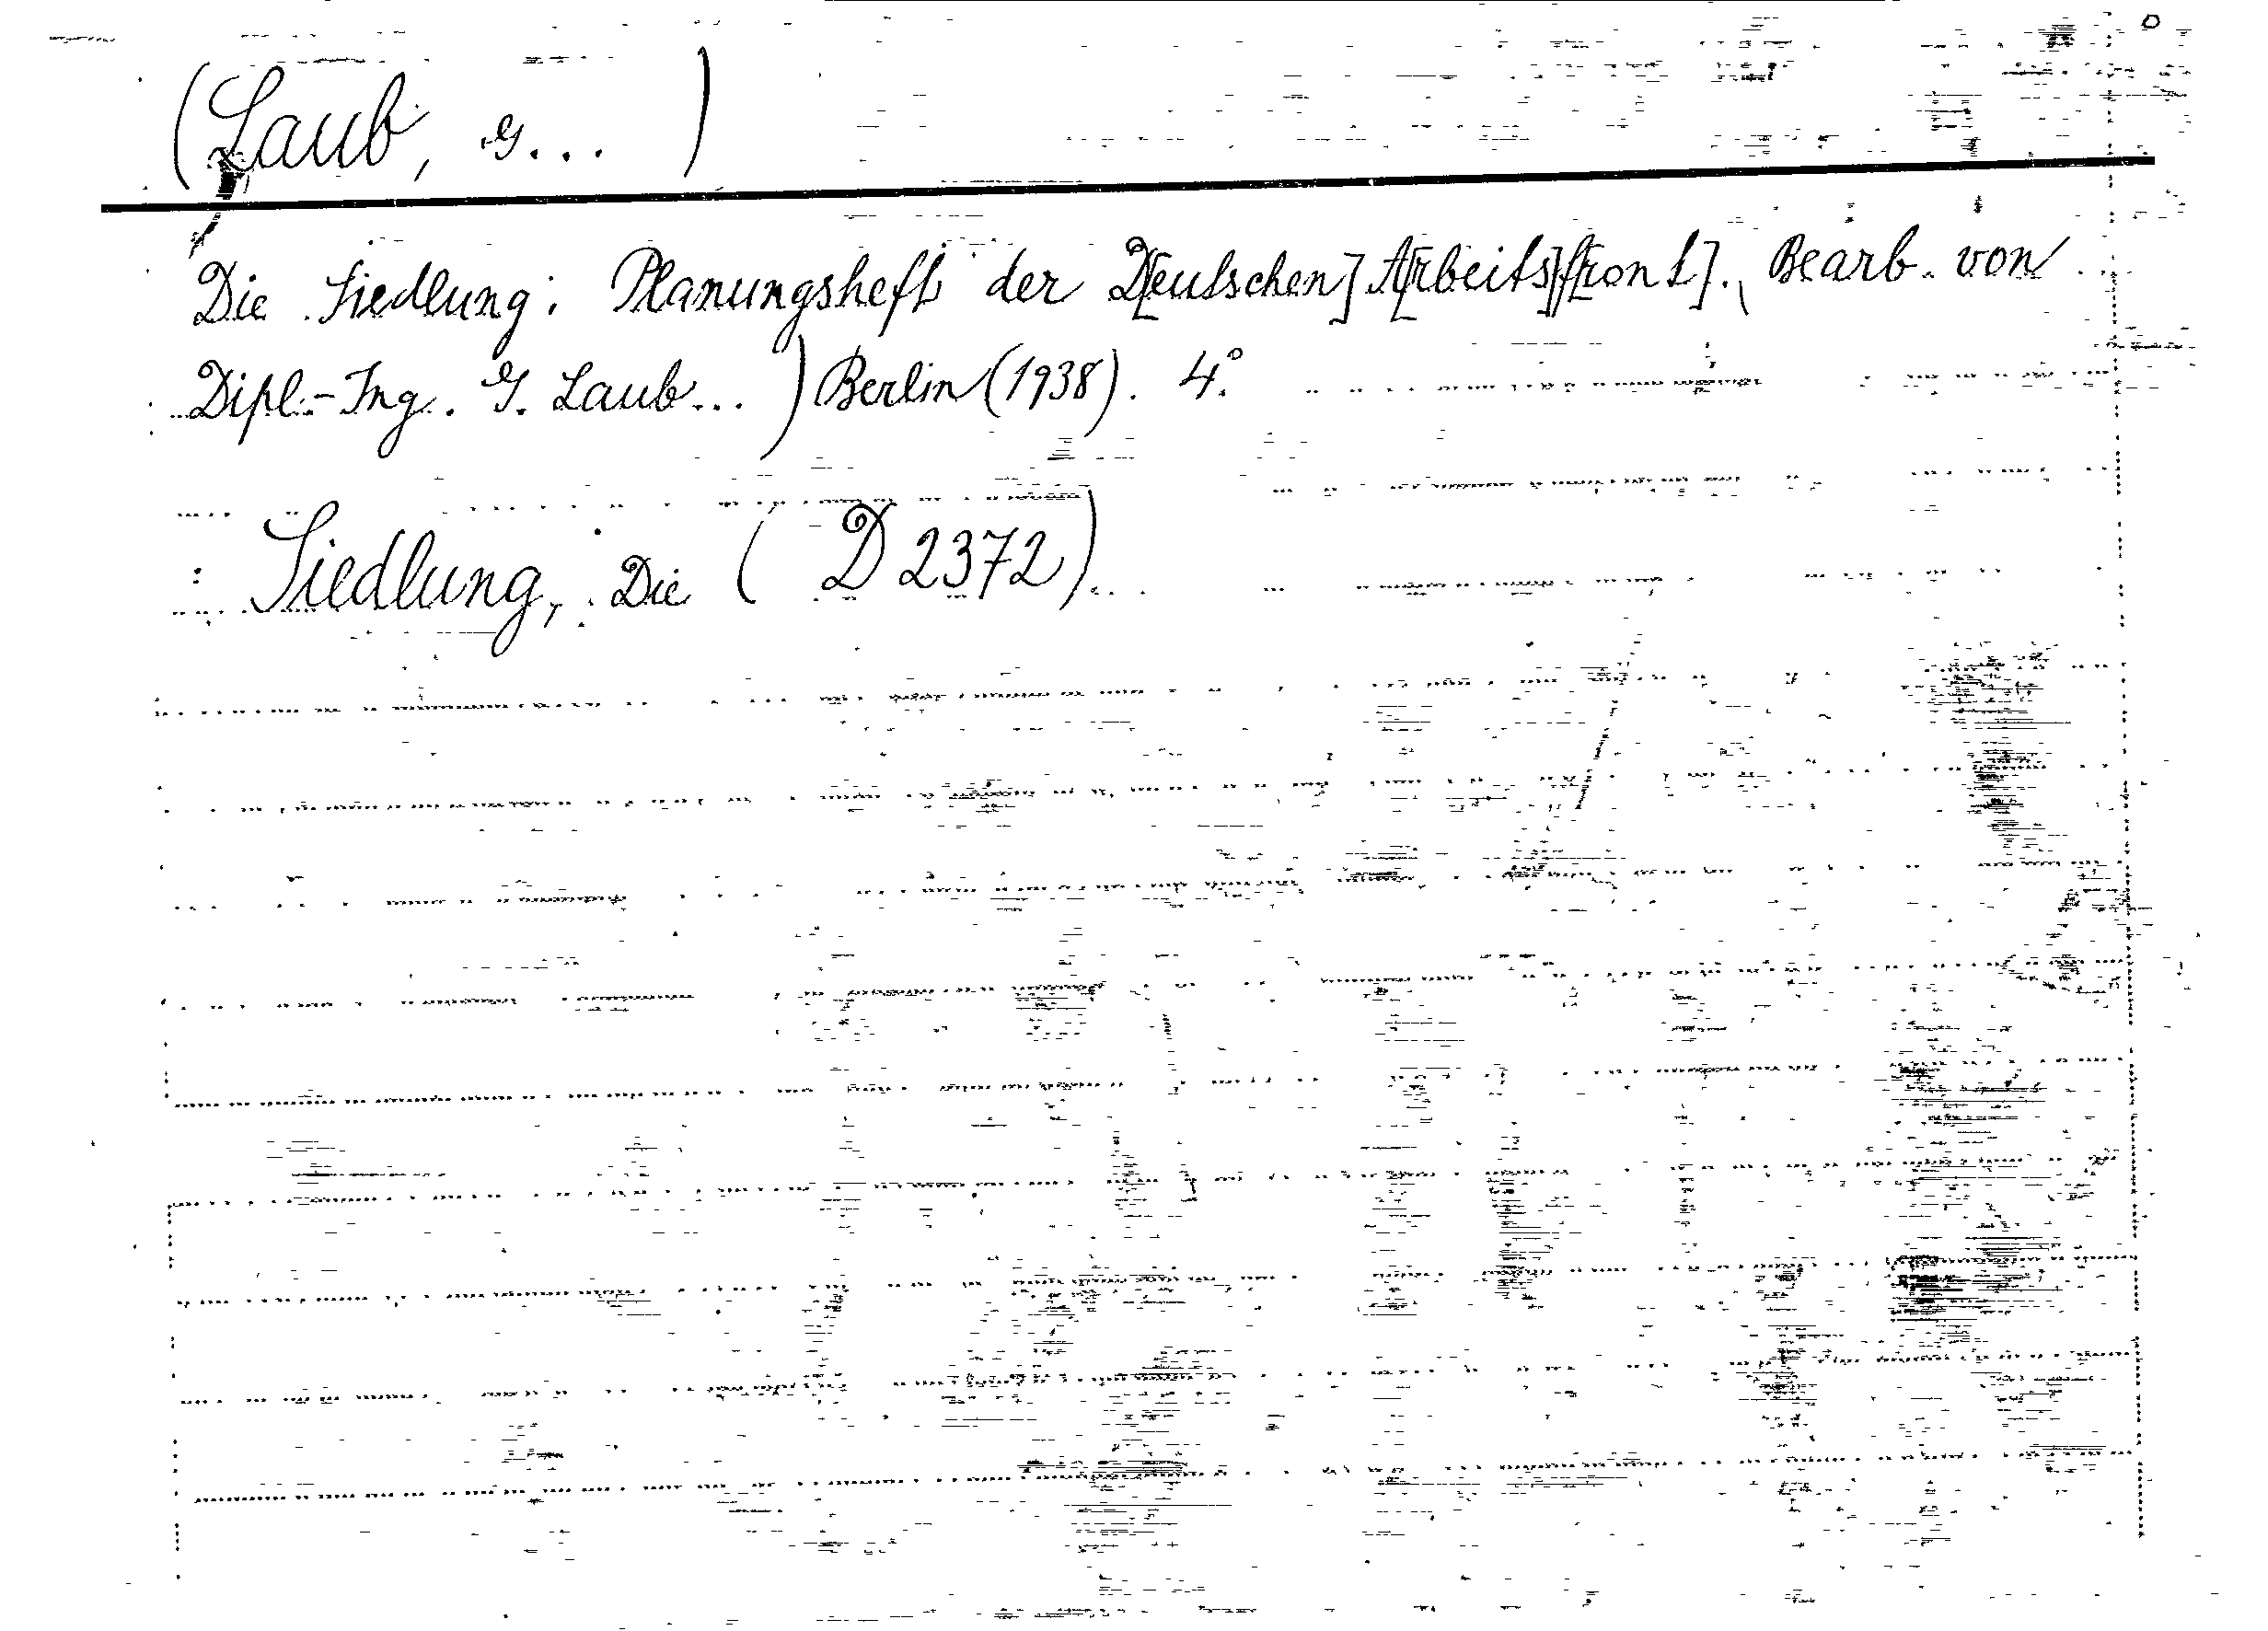 (Laub, G... )
Die Siedlung. Planungsheft der D[eutschen] A[rbeits]f[ront]. Bearb. von
Dipl.-Ing. G. Laub... ) Berlin (1938). 4°.
: Siedlung, Die ( D 2372)